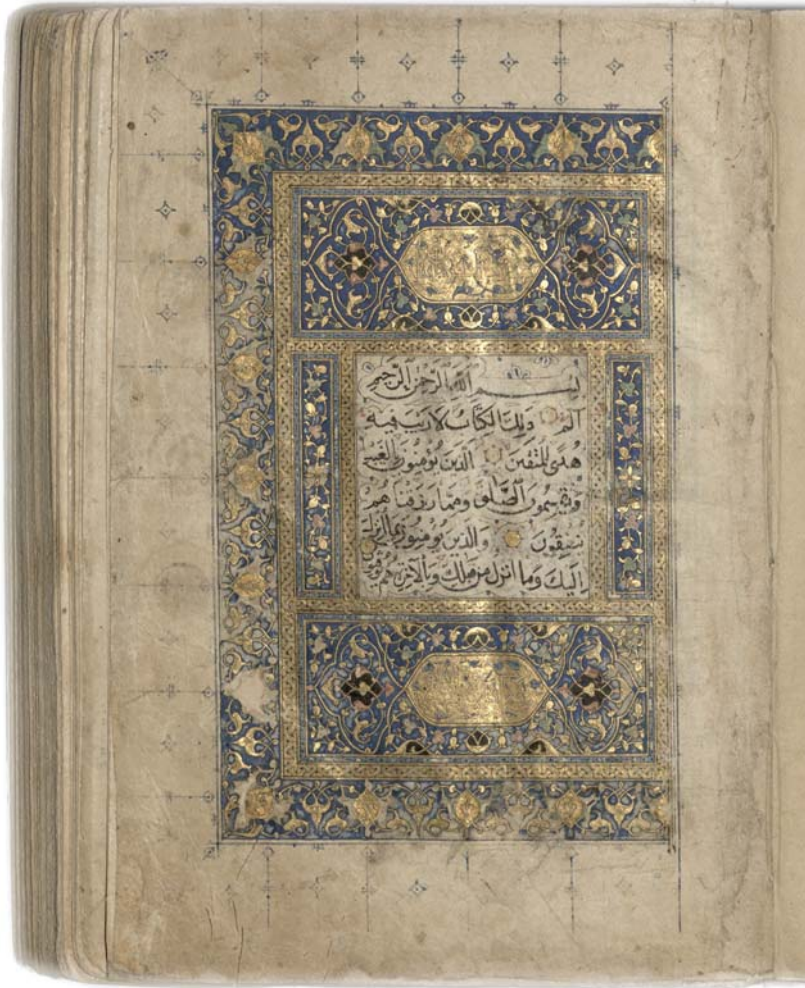 بسم الله الرحمن الرحيم
الم ذلك الكتاب لا ريب فيه
هدى للمتقين الذين يؤمنون بالغيب
ويقيمون الصلوة ومما رزقناهم
ينفقون والذين يؤمنون بما انزل
اليك وما انزل من قبلك وبالاخرة هم يوقنون